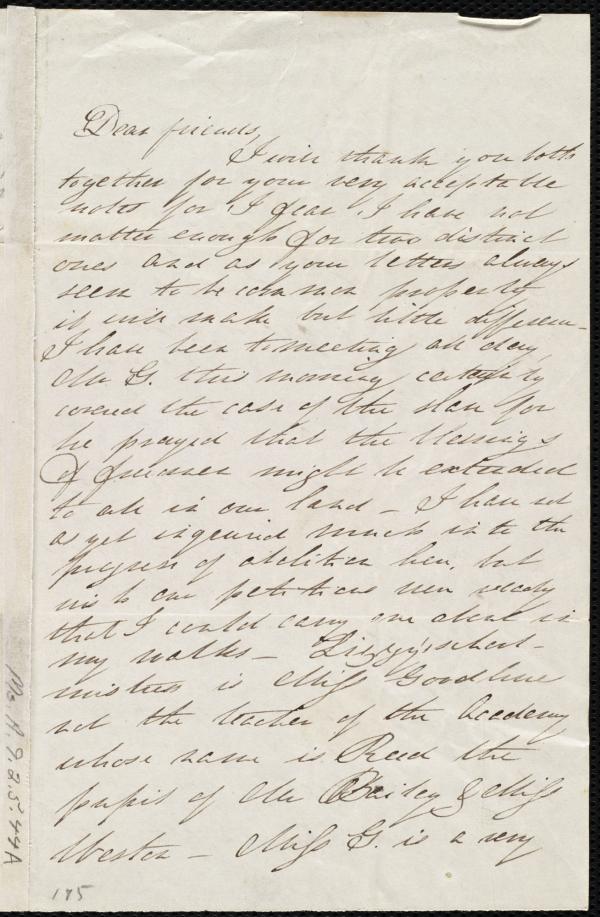 Dear friends,
I will thank you both
together for your very acceptable
notes for I fear I have not
matter enough for two distinct
ones and as your letters always
seem to be common property
it will make but little differen-
I have been to meeting all day,
Mr G. this morning certainly
covered the case of the slave for
he prayed that the blessings
of freemen might be extended
to all in our land - I have not
as yet inquired much into the
progress of abolition here, but
wish our petitions were ready
that I could carry one about in
my walks - Lizzy's school-
mistress is Miss Goodhue
not the teacher of the Academy
whose name is Reed the
pupil of Mr Bailey & Miss
Weston - Miss G. is a very
175
Ms. A. 9. 2. 5. 44A